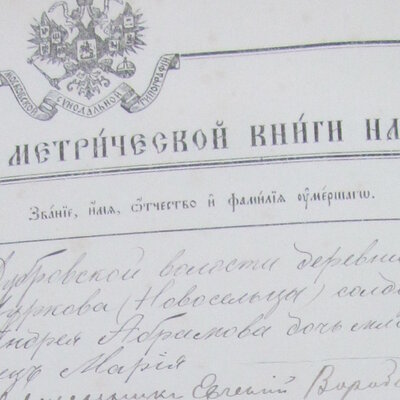 МОСКОВСКОЙ СѴНОДАЛЬНОЙ ТИПОГРАФІИ
МЕТРИ́ЧЕСКОЙ КНИ́ГИ НА
Зва́нїе, и҆́мѧ, ѻ҆́тчество и҆ фами́лїѧ ᲂу҆ме́ршагѡ.
Дубровской волости деревни
(Новосельцы) солда
Андрея Абрамова дочь мла
нецъ Марія
Евгеній Вороб